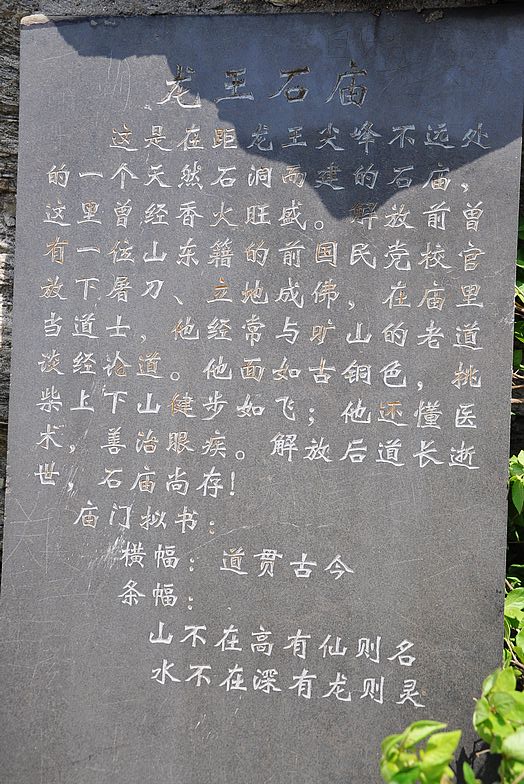 龙王石庙
这是在距龙王尖峰不远处
的一个天然石洞而建的石庙，
这里曾经香火旺盛。解放前曾
有一位山东籍的前国民党校官
放下屠刀、立地成佛，在庙里
当道士，他经常与旷山的老道
谈经论道。他面如古铜色，挑
柴上下山健步如飞；他还懂医
术，善治眼疾。解放后道长逝
世，石庙尚存！
庙门拟书：
横幅：道贯古今
条幅：
山不在高有仙则名
水不在深有龙则灵